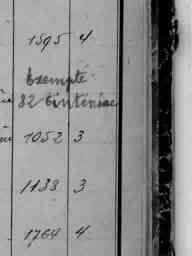 1595 4
Exempté
82 Tinténiac
1052 3
1133 3
1764 4